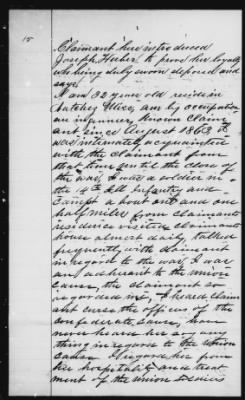 15
Claimant here introduced
Joseph Huber to prove her loyalty
who being duly sworn deposes and
says
I am 32 years old reside in
Natchez Miss, am by occupation
known Claim
ant since August 1863 I
was intimately acquainted
with the claimant from
that time until the close of
the war, I was a soldier in
the Ill Infantry and
Camp a bout one and one
half miles from claimants
residence visited claimants
house almost daily, talked
frequently with claimant
in regard to the war, I was
an adherant to the union
cause, the claimant so
regarded me, I heard Claim
ant curse the officers of the
confederate cause, have
never heard her say any
thing in regard to the Union
cause I regard her from
her hospitality and treat
ment of the union soldiers